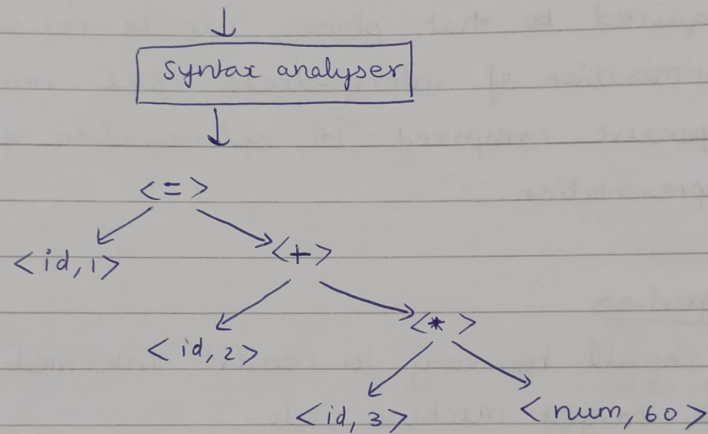 syntax analyser
<=>
<id,1>
<+>
<id,2>
<*>
<id,3>
<num,60>